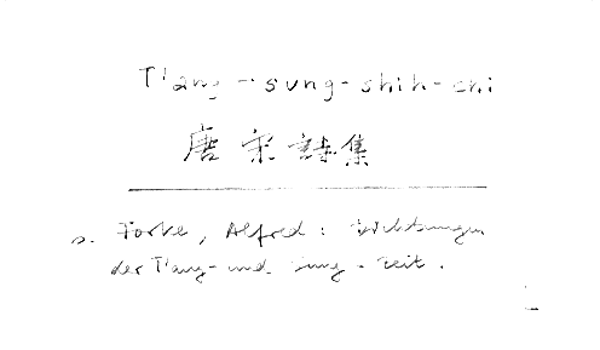 T'ang-sung-shih-chi
唐宋詩集
s. Forke, Alfred: Dichtungen
der T'ang- und Sung-Zeit.